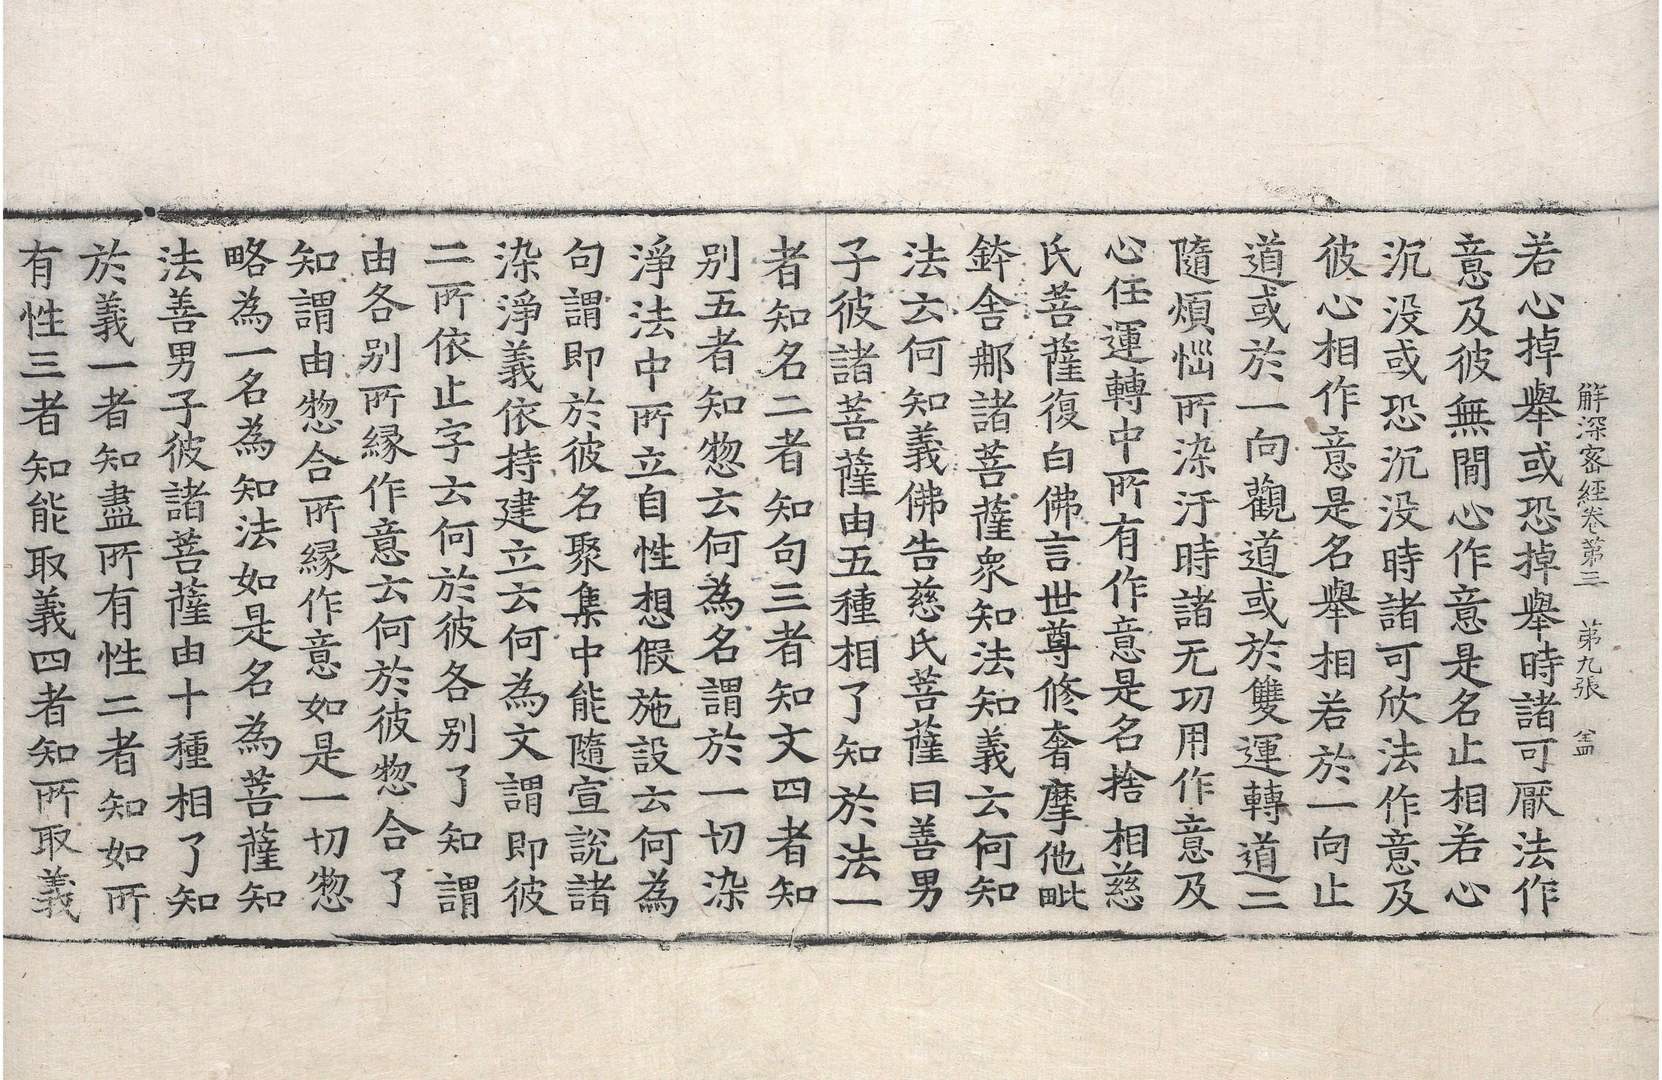 解深密經卷第三　第九張　盖
若心掉舉或恐掉舉時諸可厭法作
意及彼無間心作意是名止相若心
沉没或恐沉没時諸可欣法作意及
彼心相作意是名舉相若於一向止
道或於一向觀道或於雙運轉道二
隨煩惱所染汙時諸无功用作意及
心任運轉中所有作意是名捨相慈
氏菩薩復白佛言世尊修奢摩他毗
鉢舍那諸菩薩衆知法知義云何知
法云何知義佛告慈氏菩薩曰善男
子彼諸菩薩由五種相了知於法一
者知名二者知句三者知文四者知
别五者知惣云何為名謂於一切染
淨法中所立自性想假施設云何為
句謂即於彼名聚集中能隨宣說諸
染淨義依持建立云何為文謂即彼
二所依止字云何於彼各别了知謂
由各别所縁作意云何於彼惣合了
知謂由惣合所縁作意如是一切惣
略為一名為知法如是名為菩薩知
法善男子彼諸菩薩由十種相了知
於義一者知盡所有性二者知如所
有性三者知能取義四者知所取義